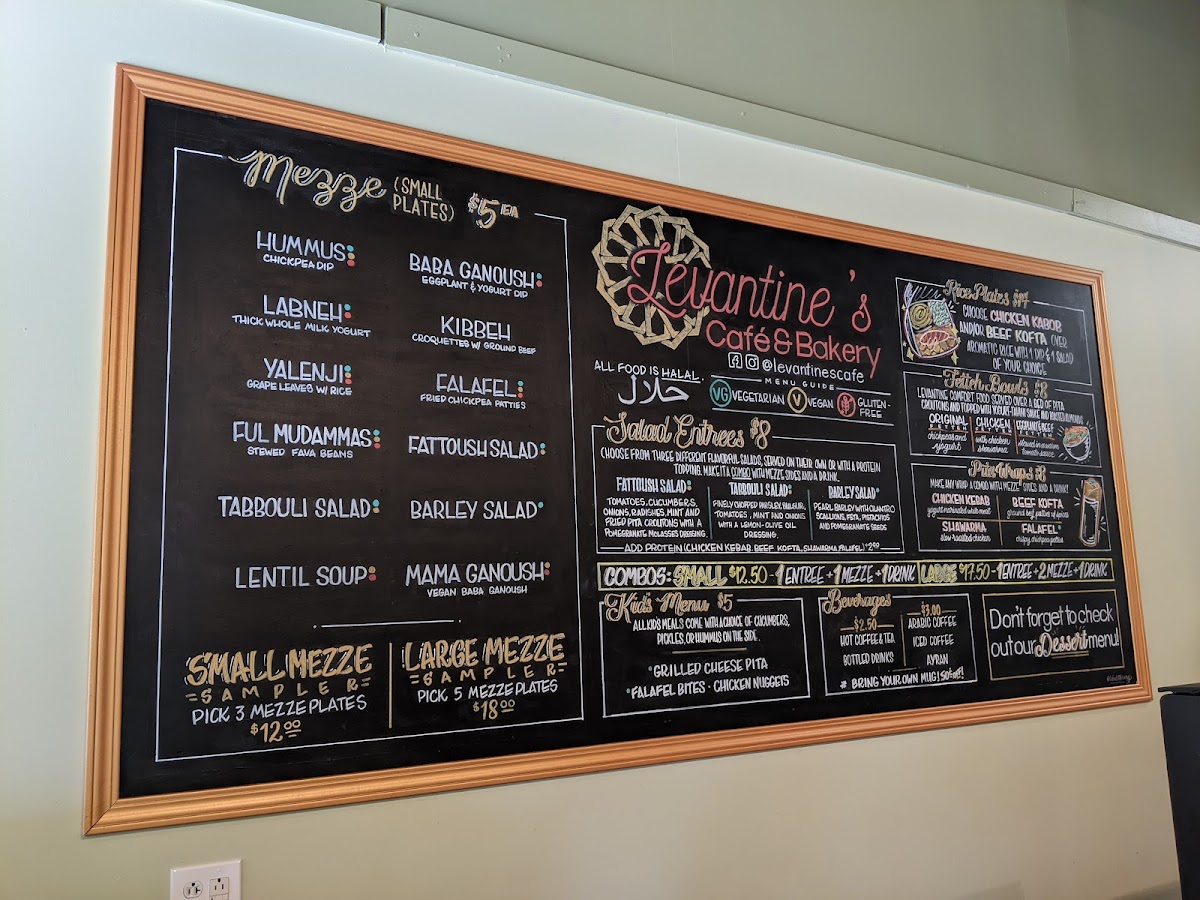 Mezze (SMALL PLATES) $5 EA
HUMMUS
CHICKPEA DIP
LABNEH
THICK WHOLE MILK YOGURT
YALENJI
GRAPE LEAVES W/ RICE
FUL MUDAMMAS
STEWED FAVA BEANS
TABBOULI SALAD
LENTIL SOUP
BABA GANOUSH
EGGPLANT & YOGURT DIP
KIBBEH
CROQUETTES W/ GROUND BEEF
FALAFEL
FRIED CHICKPEA PATTIES
FATTOUSH SALAD
BARLEY SALAD
MAMA GANOUSH
VEGAN BABA GANOUSH
SMALL MEZZE
SAMPLER
PICK 3 MEZZE PLATES
$12.00
LARGE MEZZE
SAMPLER
PICK 5 MEZZE PLATES
$18.00
Levantine's
Café & Bakery
@levantinescafe
ALL FOOD IS HALAL.
حلال
MENU GUIDE
VG VEGETARIAN V VEGAN GLUTEN-
FREE
Salad Entrees $8
CHOOSE FROM THREE DIFFERENT FLAVORFUL SALADS, SERVED ON THEIR OWN OR WITH A PROTEIN
TOPPING. MAKE IT A COMBO WITH MEZZE SIDES AND A DRINK.
FATTOUSH SALAD
TOMATOES, CUCUMBERS,
ONIONS, RADISHES, MINT AND
FRIED PITA CROUTONS WITH A
POMEGRANATE MOLASSES DRESSING.
TABBOULI SALAD
FINELY CHOPPED PARSLEY, BULGUR,
TOMATOES, MINT AND ONIONS
WITH A LEMON-OLIVE OIL
DRESSING.
BARLEY SALAD
PEARL BARLEY WITH CILANTRO
SCALLIONS, FETA, PISTACHIOS
AND POMEGRANATE SEEDS
ADD PROTEIN (CHICKEN KEBAB, BEEF KOFTA, SHAWARMA, FALAFEL) +2.00
COMBOS: SMALL $12.50 - 1 ENTREE + 1 MEZZE + 1 DRINK LARGE $17.50 - 1 ENTREE + 2 MEZZE + 1 DRINK
Kid's Menu $5
ALL KIDS MEALS COME WITH A CHOICE OF CUCUMBERS,
PICKLES, OR HUMMUS ON THE SIDE.
GRILLED CHEESE PITA
FALAFEL BITES · CHICKEN NUGGETS
Beverages
$2.50
HOT COFFEE & TEA
BOTTLED DRINKS
$3.00
ARABIC COFFEE
ICED COFFEE
AYRAN
# BRING YOUR OWN MUG! 50¢ off!
Rice Plates $14
CHOOSE CHICKEN KABOB
AND/OR BEEF KOFTA OVER
AROMATIC RICE WITH 1 DIP & 1 SALAD
OF YOUR CHOICE
Fetteh Bowls $8
LEVANTINE COMFORT FOOD SERVED OVER A BED OF PITA
CROUTONS AND TOPPED WITH YOGURT-TAHINI SAUCE AND
ORIGINAL
FETTEH
chickpeas and
yogurt
CHICKEN
FETTEH
with chicken
shawarma
EGGPLANT & BEEF
FETTEH
stewed in
tomato sauce
Pita Wraps $8
MAKE ANY WRAP A COMBO WITH MEZZE SIDES AND A DRINK!
CHICKEN KEBAB
yogurt marinated white meat
BEEF KOFTA
ground beef patties w/ spices
SHAWARMA
slow roasted chicken
FALAFEL
crispy chickpea patties
Don't forget to check
out our Dessert menu!